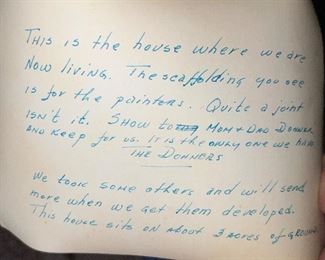 This is the house where we are
Now living. The scaffolding you see
is for the painters. Quite a joint
isn't it. Show to Mom & Dad Donner
and keep for us. It is the only one we have
The Donners
We took some others and will send
more when we get them developed.
This house sits on about 3 acres of ground